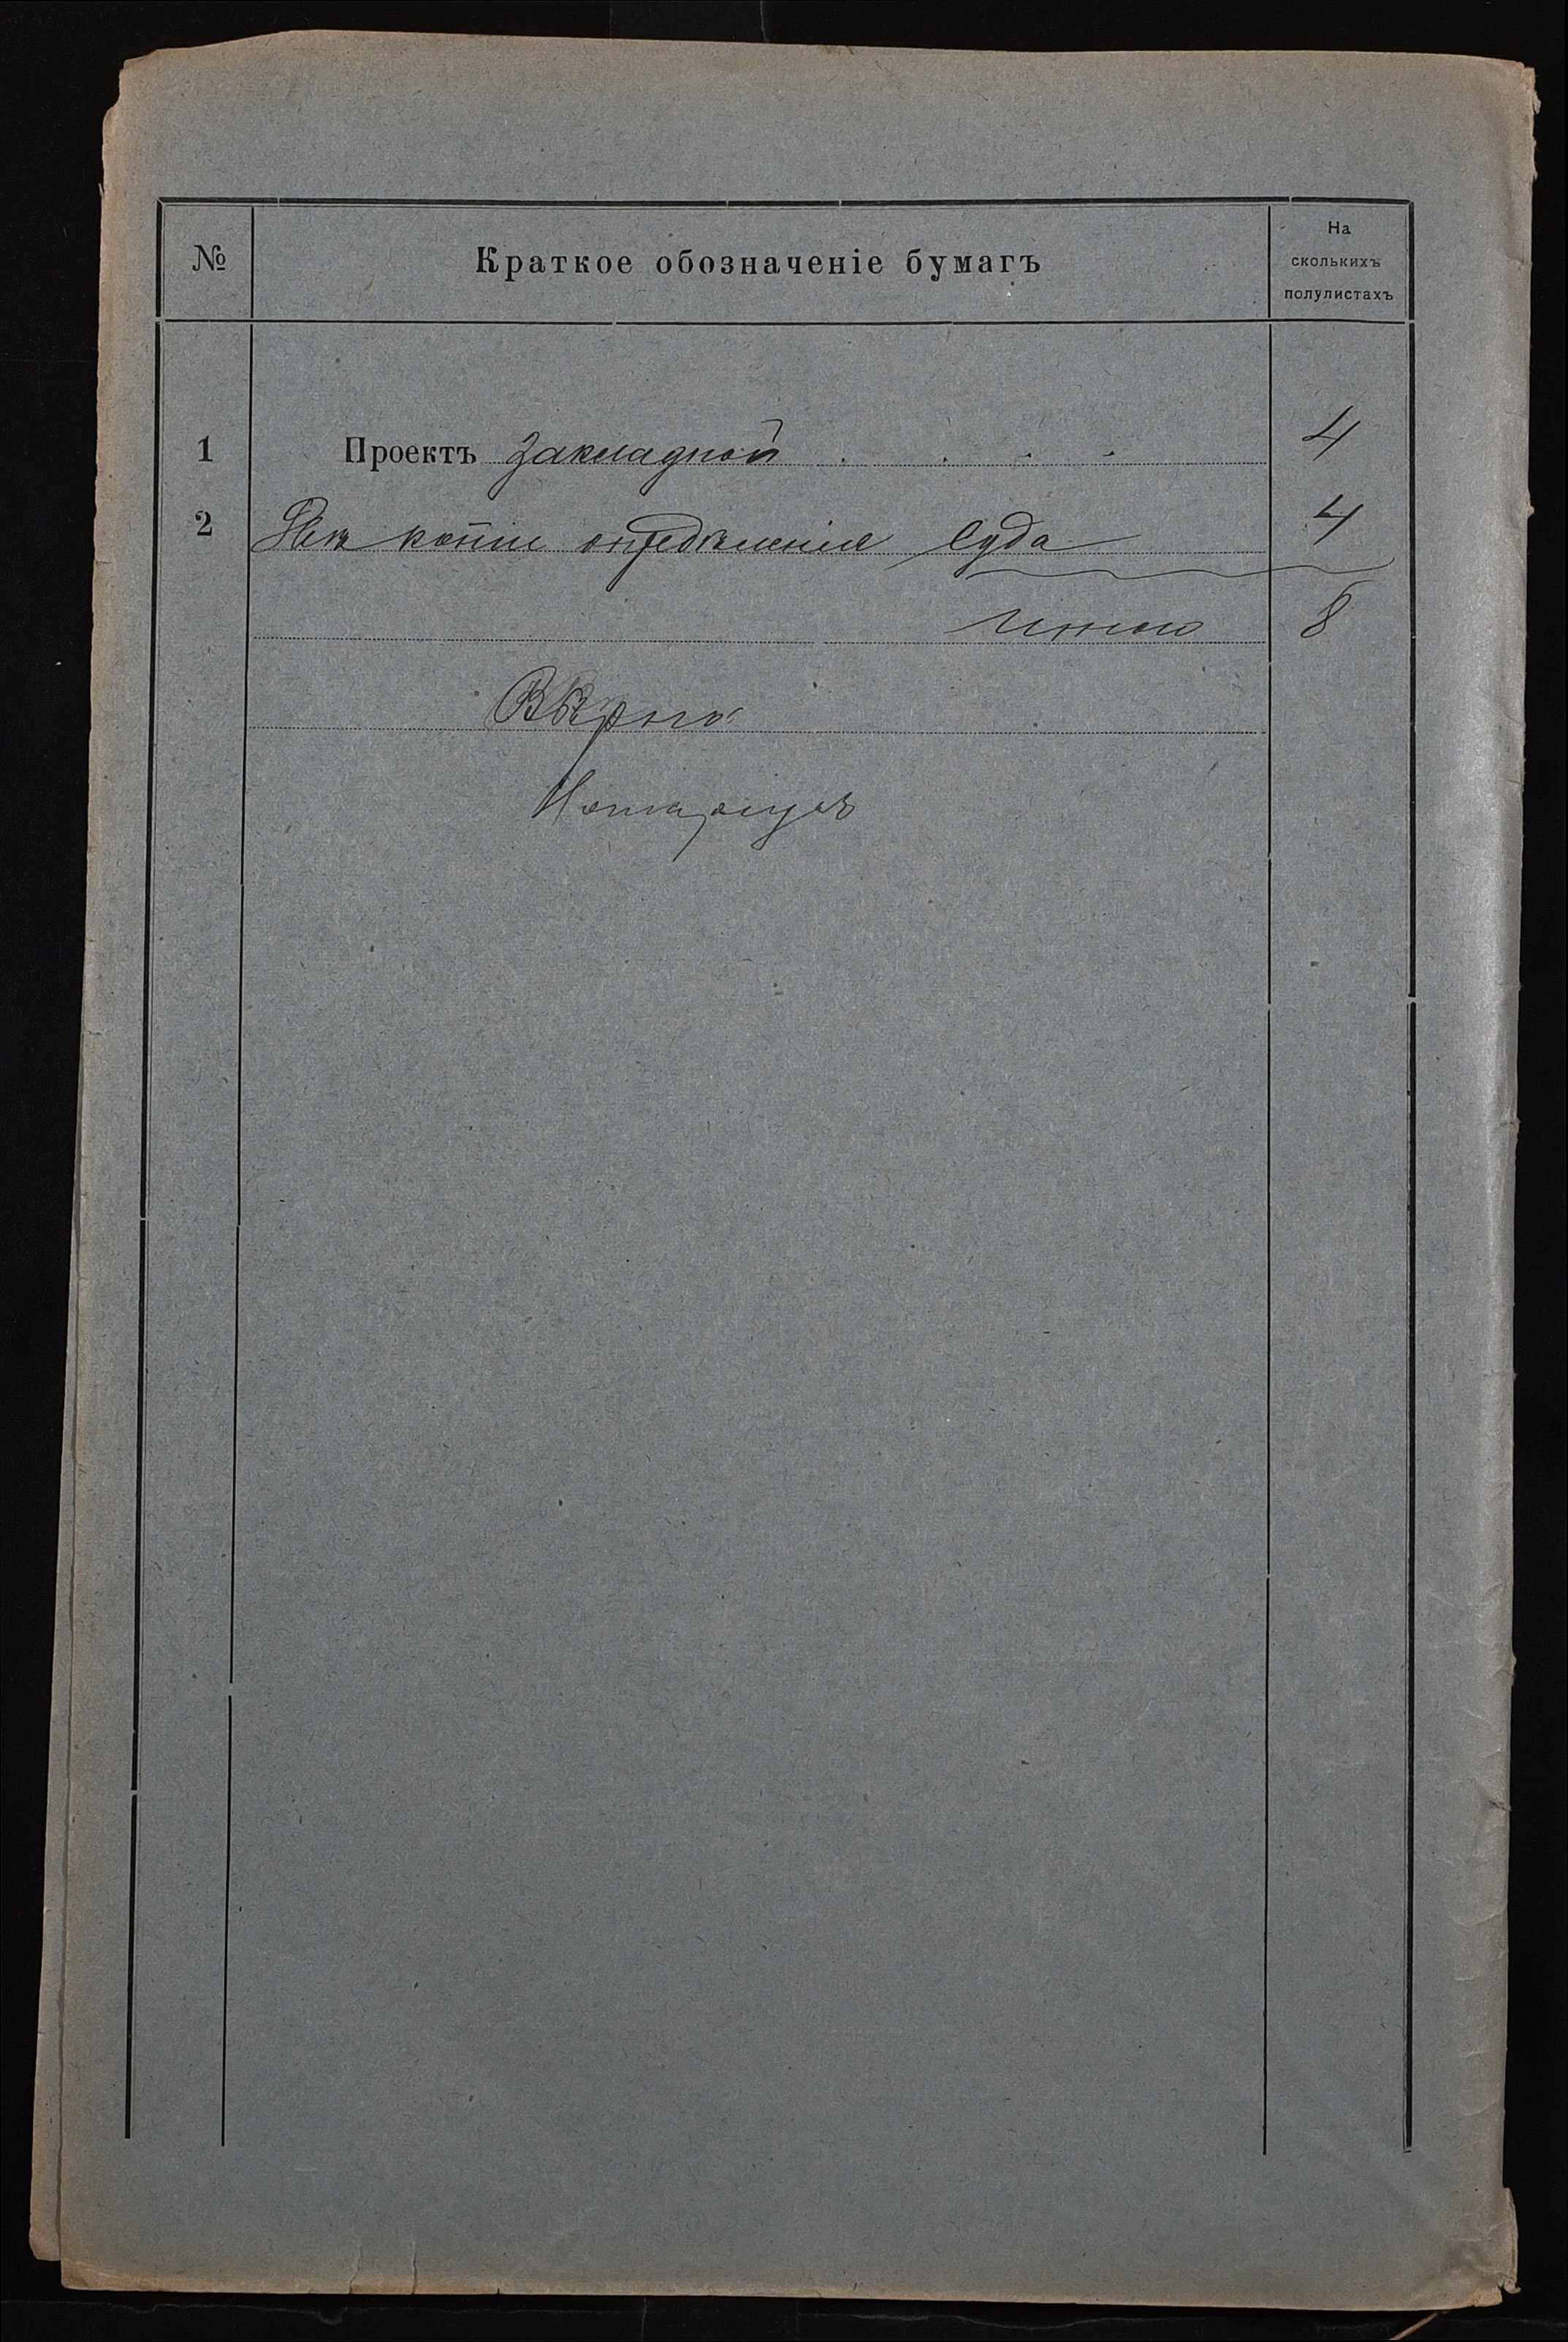 № Краткое обозначеніе бумагъ На сколькихъ полулистахъ
1 Проектъ закладной . . . . 4
2 Двѣ копіи опредѣленія Суда 4
Итого 8
Вѣрно:
Нотаріусъ